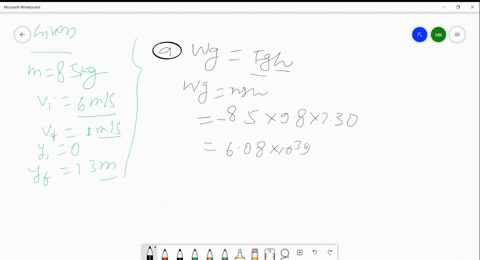 Microsoft Whiteboard
MK
Given
m = 85kg
Vi = 6 m/s
Vf = 1 m/s
yi = 0
yf = 7.3 m
a Wg = Fgh
Wg = mgh
= -85 × 9.8 × 7.30
= 6.08 × 10³ J